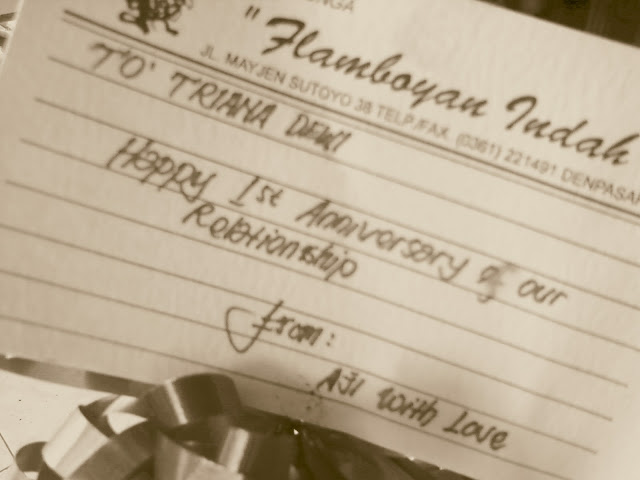 "Flamboyan Indah
JL. MAYJEN SUTOYO 38 TELP./FAX. (0361) 221491 DENPASAR
TO' TRIANA DEWI
Happy 1st Anniversary of our
Relationship
from:
AJI With Love